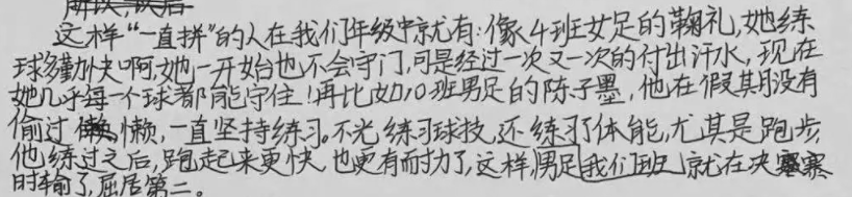 这样“一直拼”的人在我们年级中就有:像4班女足的鞠礼,她练
球多勤快啊,她一开始也不会守门,可是经过一次又一次的付出汗水,现在
她几乎每一个球都能守住!再比如10班男足的陈子墨,他在假期没有
偷过懒,一直坚持练习。不光练习球技,还练习体能,尤其是跑步,
他练过之后,跑起来更快,也更有耐力了,这样,男足我们班就在决赛
时输了,屈居第二。